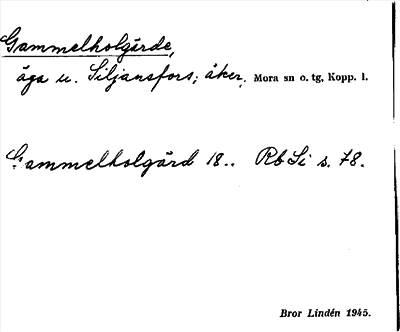 Gammelholgärde,
äga u. Siljansfors; åker. Mora sn o. tg, Kopp. l.
Gammelholgärd 18.. Rb Si s. 78.
Bror Lindén 1945.